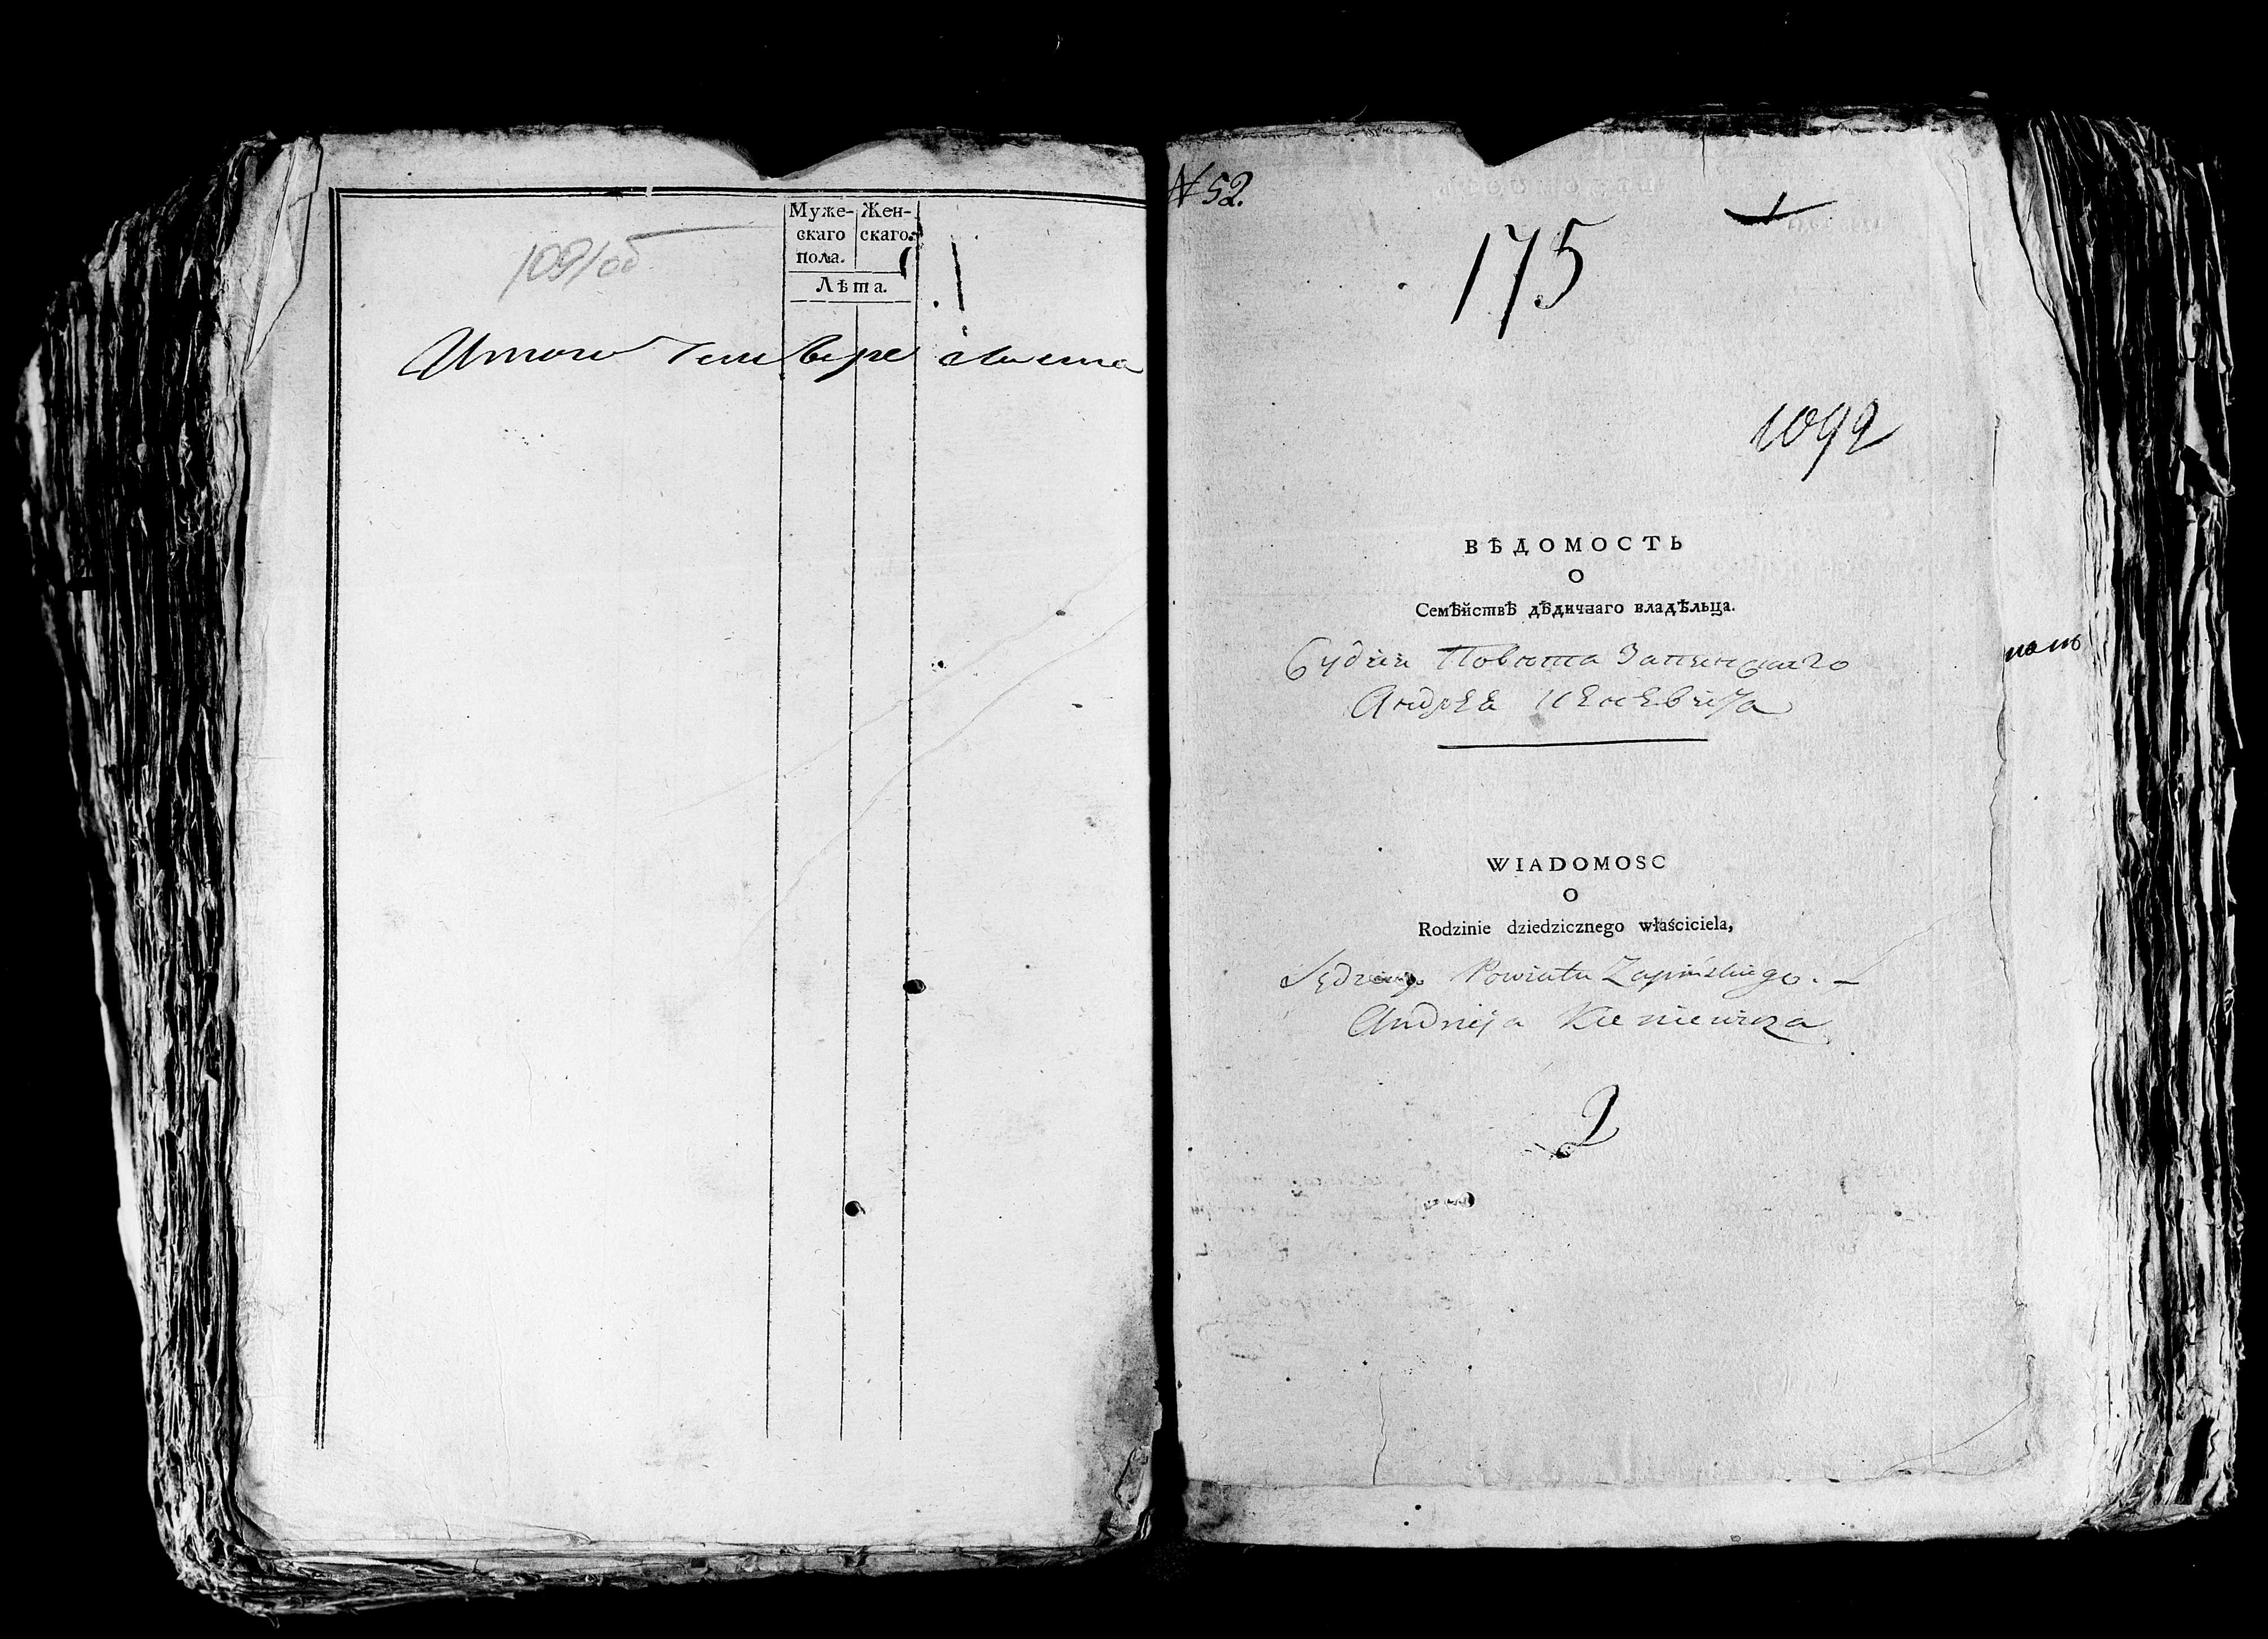 Муже-
скаго
пола.
Жен-
скаго.
Лѣта.
1091об
Итого четыре листа
N 52.
175
1092
ВѢДОМОСТЬ
О
Семѣйствѣ дѣдичнаго владѣльца.
Судіи Повюта Запинскаго
Андрея
WIADOMOSC
O
Rodzinie dziedzicznego właściciela,
Sędziego Powiatu Zapińskiego. –
Andrzeja Kieniewicza
2